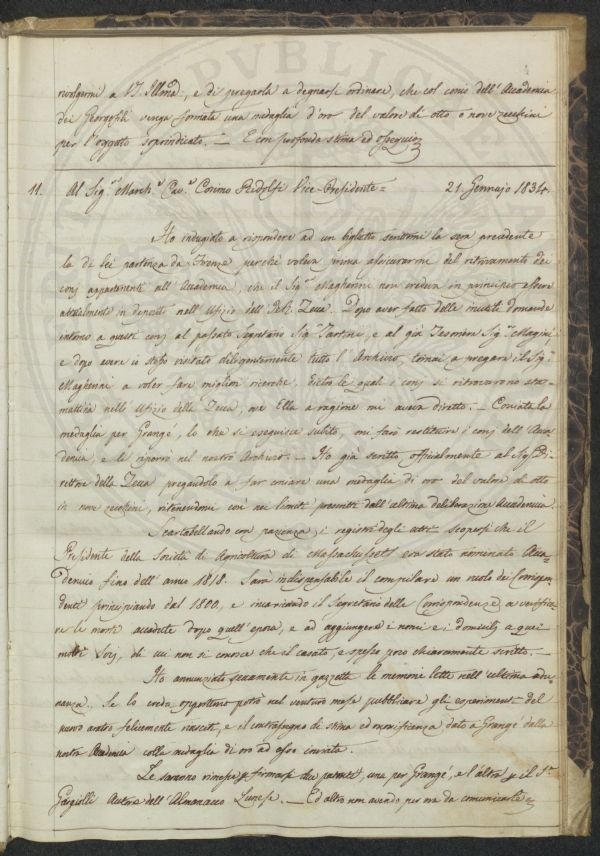 rivolgermi a V.S. Illma, e di pregarla a degnarsi ordinare, che col conio dell'Accademia
dei Georgofili venga formata una medaglia d'oro del valore di otto o nove zecchini
per l'oggetto sopraindicato. — E con profonda stima ed ossequio
11. Al Sig.r March.e Cav.e Cosimo Ridolfi Vice-Presidente = 21. Gennajo 1834.
Ho indugiato a rispondere ad un biglietto scrittomi la sera precedente
la di Lei partenza da Firenze perchè voleva prima assicurarmi del ritrovamento dei
conj appartenenti all'Accademia, che il Sig.r Magherini non credeva in principio essere
attualmente in deposito nell'Ufizio dell' Zecca. Dopo aver fatto delle inutili domande
intorno a questi conj al passato Segretario Sig.r Tartini, e al già Tesoriere Sig.r Magini,
e dopo avere io stesso visitato diligentemente tutto l'Archivio, tornai a pregare il Sig.r
Magherini a voler fare migliori ricerche, dietro le quali i conj si ritrovarono sta-
mattina nell'Ufizio della Zecca, ove Ella a ragione mi aveva diretto. — Coniata la
medaglia per Grangé, lo che si eseguisce subito, mi farò restituire i conj dell'Acca-
demia, e li riporrò nel nostro Archivio. — Ho già scritto officialmente al Sig.r Di-
rettore della Zecca pregandolo a far coniare una medaglia di oro del valore di otto
in nove zecchini, ritenendomi così nei limiti prescritti dall'ultima deliberazione Accademica.
Scartabellando con pazienza i registri degli atti scopersi che il
Presidente della Società di Agricoltura di Massachussetts era stato nominato Acca-
demico fino dell'anno 1818. Sarà indispensabile il compilare un ruolo dei Corrispon-
denti principiando dal 1800, e incaricando il Segretario delle Corrispondenze a verifica-
re le morti accadute dopo quell'epoca, e ad aggiungere i nomi e i domicilj a quei
molti Socj, di cui non si conosce che il casato, e spesso poco chiaramente scritto. —
Ho annunziato seccamente in gazzetta le memorie lette nell'ultima adu-
nanza. Se lo creda opportuno potrò nel venturo mese pubblicare gli esperimenti del
nuovo aratro felicemente riusciti, e il contrassegno di stima ed onorificenza dato a Grangé dalla
nostra Accademia colla medaglia di oro ad esso inviata.
Le saranno rimesse p. firmarsi due patenti, una per Grangé, e l'altra p. il S.r
Gargiolli Autore dell'Almanacco Lunese. — Ed altro non avendo per ora da comunicarle